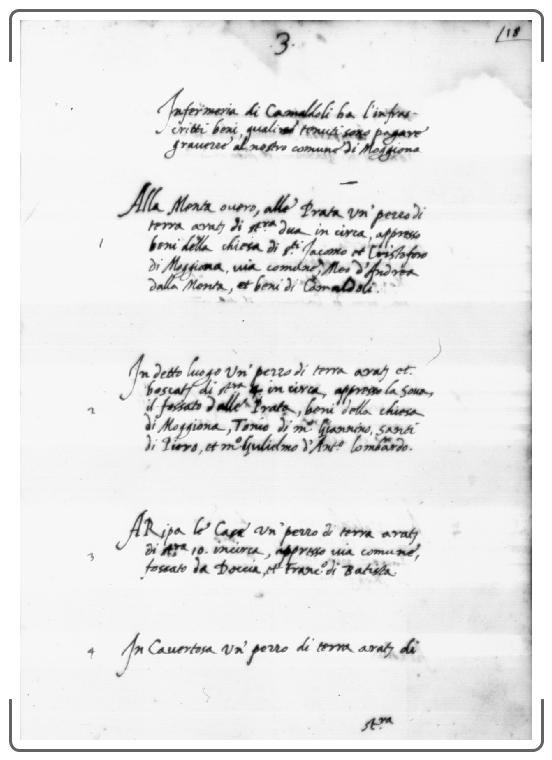 3.
118
Infermeria di Camaldoli ha l'infras-
critti beni, quali tenuti sono pagare
gravezze al nostro comune di Moggiona
Alla Monta overo, alle Prata un' pezzo di
terra arat; di st.ra dua in circa, appresso
1
beni della chiesa di s.ti Jacomo et Cristoforo
di Moggiona, via comune, Meo d'Andrea
dalla Monta, et beni di Camaldoli.
In detto luogo un' pezzo di terra arat; et
boscat; di st.ra 4 in circa, appresso la Sova,
2
il fossato dalle Prata, beni della chiesa
di Moggiona, Tonio di m.o Giannino, Santi
di Piero, et m.o Gulielmo d'Ant.o lombardo.
A Ripa le Case un' pezzo di terra arat;
di st.ra 10. incirca, appresso via comune,
3
fossato da Doccia, et Franc.o di Batista
4 In Cavertosa un' pezzo di terra arat; di
st.ra